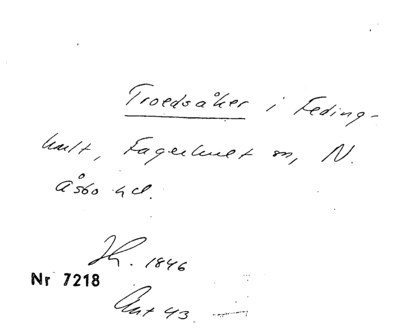 Troedsåker i Feding-
hult, Fagerhult sn, N.
Åsbo hd.
Jh. 1846
Nr 7218
Ant 43